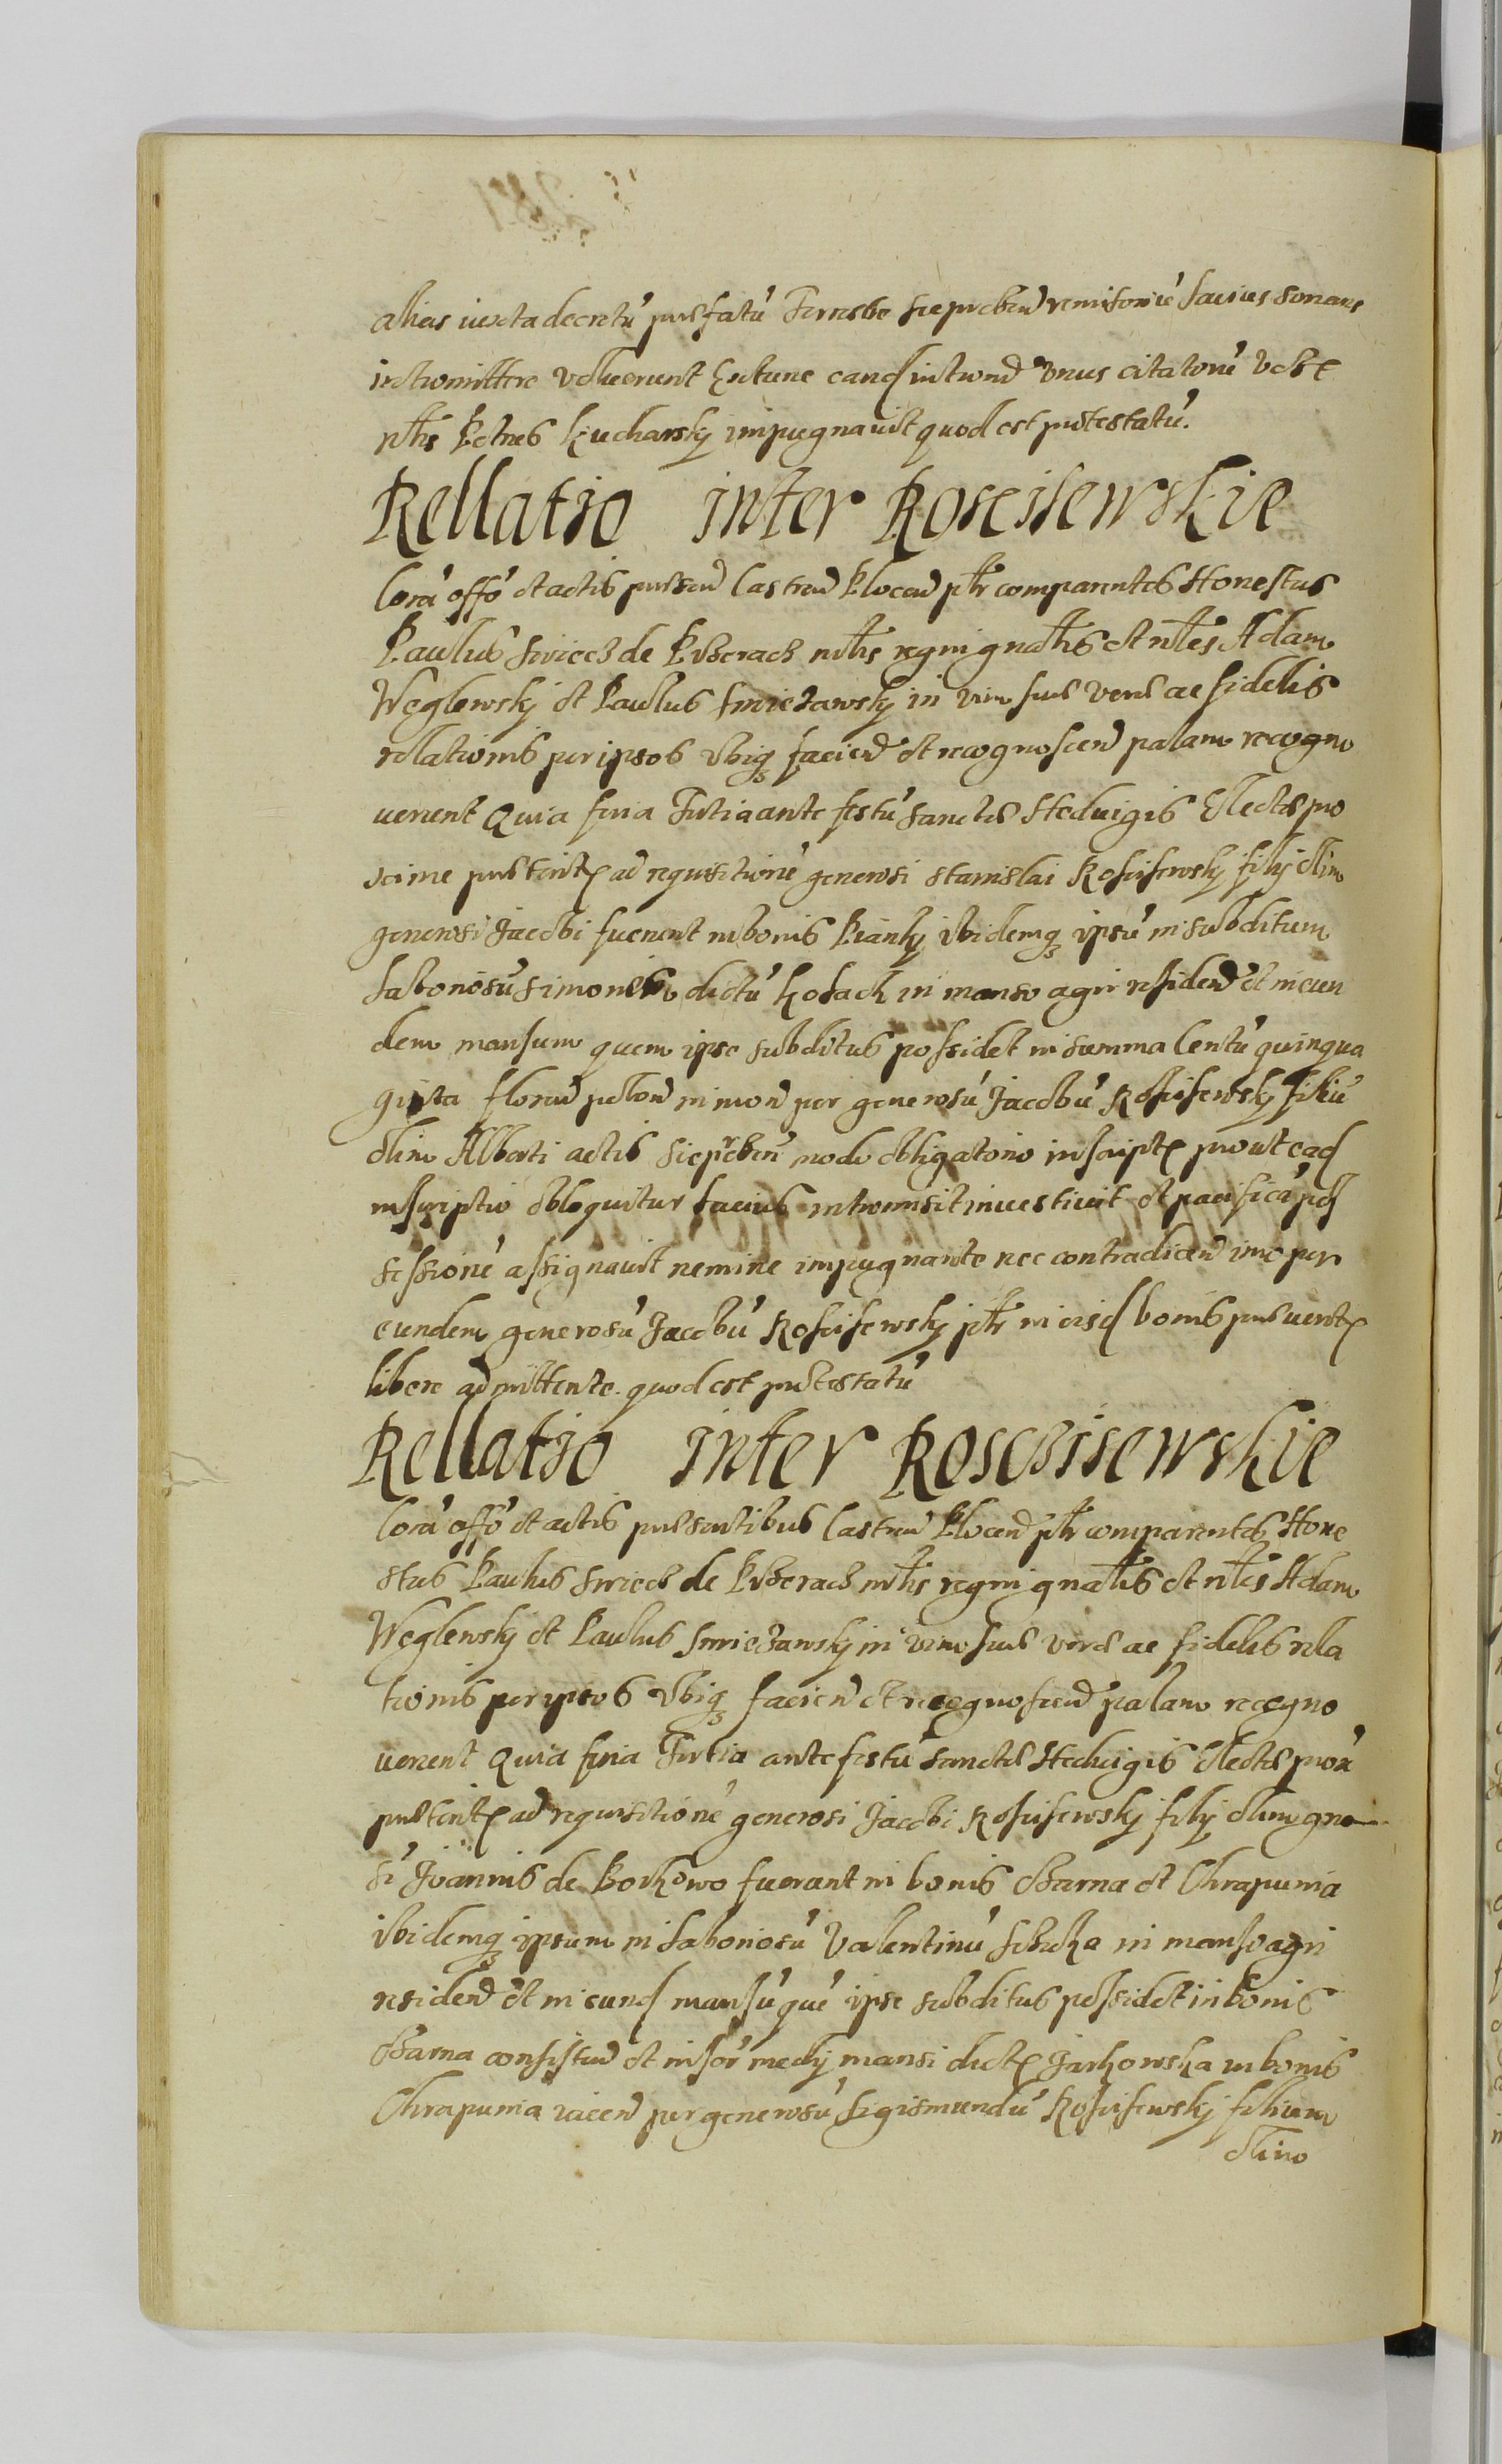 alias iuxta decretu praefatu Terrestre Sieprcben remissorie lacius sonans
intromittere voluerunt Extunc eand intromd unus citatoru
nblis Petrus Kucharsky impugnavit quod est protestatu.
Rellatio inter Roscisewskie
Cora offo et actis praesen Castren Plocen psr comparentes Honestus
Paulus Swiech de mtlis regni gnalis et nbles Adam
Węglewsky et Paulus Smiezawsky in vim suae verae ac fidelis
relationis per ipsos ubiq faciend et recognoscen palam recogno
verunt Quia feria Tertia ante festu Sanctae Heduigis Electae pro
xime praeterit ad requisitione generosi Stanislai Rosciszewsky filij olim
generosi Jacobi fuerunt in bonis ibidemq ipsu in subditum
laboriosu Simonem dictu Kosack in manso agri residen et in eun
dem mansum quem ipse subditus possidet in summa Centu quinqua
ginta floren polon in mon per generosu Jacobu Rosciszewsky filiu
olim Alberti actis Sieprcben modo obligatorio inscript prout ead
inscriptio obloquitur lacius intromisit investiuit et pacifica pos
sessione assignavit nemine impugnante nec contradicen imo per
eundem generosu Jacobu Rosciszewsky psr in eisd bonis
libere admittente. quod est protestatu
Rellatio inter Roscziszewskie
Cora offo et actis praesentibus Castren Plocen psr comparentes Hone
stus Paulus Swiech de mtlis regni gnalis et nbles Adam
Węglewsky et Paulus Smiezawsky in vim suae verae ac fidelis rela
tionis per ipsos ubiq facien et recognoscend palam recogno
verunt Quia feria Tertia ante festu Sanctae Heduigis Electae prox
praeterit ad requisitione generosi Jacobi Rosciszewsky filij olim gnero
si Joannis de Borkowo fuerunt in bonis et Chrapunia
ibidemq ipsum in laboriosu Valentinu in manso agri
residen et in eund mansu que ipse subditus possidet in bonis
consisten et in sor medij mansi dict Jarkowska in bonis
Chrapunia iacen per generosu Sigismundu Rosciszewsky filium
olim